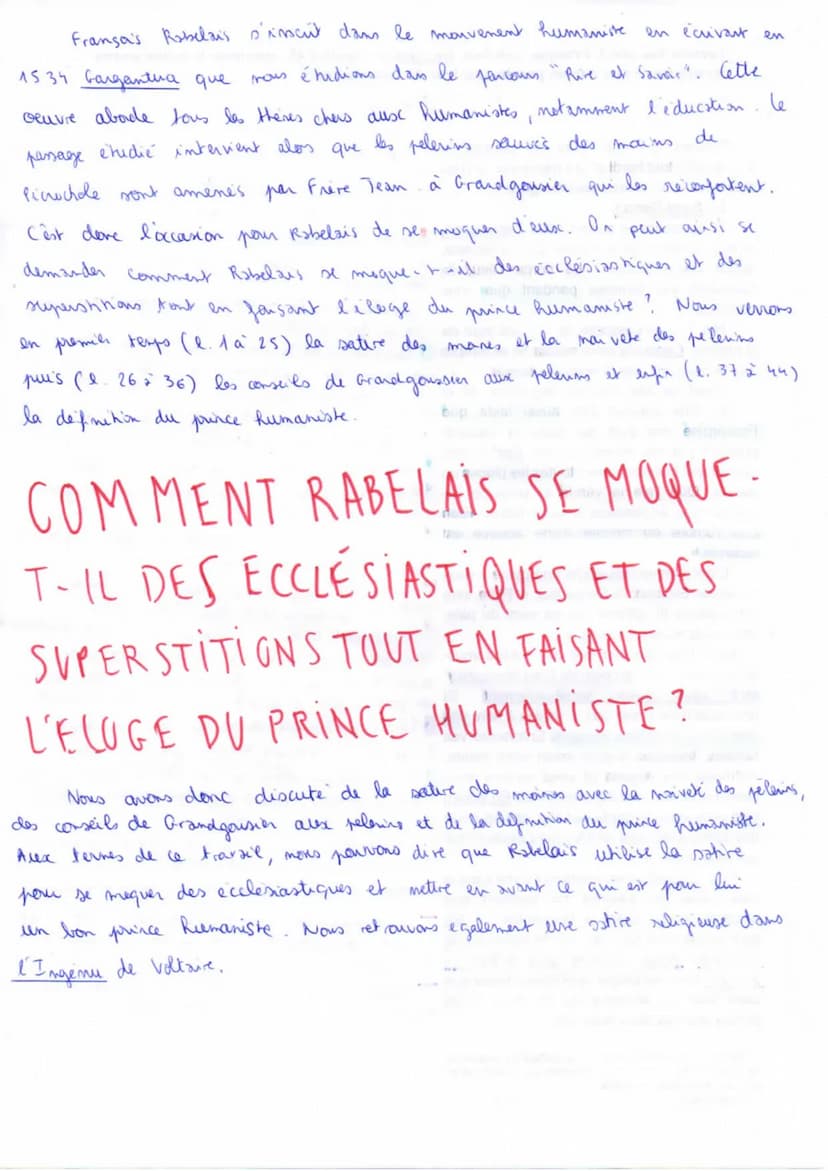 François Rabelais s'inscrit dans le mouvement humaniste en écrivant en
1534 Gargantua que nous étudions dans le parcours "Rire et Savoir". Cette
oeuvre aborde tous les thèmes chers aux humanistes, notamment l'éducation. Le
passage étudié intervient alors que les pèlerins sauvés des mains de
Picrochole sont amenés par Frère Jean à Grandgousier qui les réconfortent.
C'est donc l'occasion pour Rabelais de se moquer d'eux. On peut ainsi se
demander comment Rabelais se moque-t-il des ecclésiastiques et des
superstitions tout en faisant l'éloge du prince humaniste ? Nous verrons
en premier temps (l. 1 à 25) la satire des moines et la naiveté des pélerins
puis (l. 26 à 36) les conseils de Grandgoussier aux pelerins et enfin (l. 37 à 44)
la définition du prince humaniste.
COMMENT RABELAIS SE MOQUE-
T-IL DES ECCLÉSIASTIQUES ET DES
SUPERSTITIONS TOUT EN FAISANT
L'ELOGE DU PRINCE HUMANISTE ?
Nous avons donc discuté de la satire des moines avec la naiveté des pèlerins,
des conseils de Grandgousier aux pelerins et de la définition du prince humaniste.
Aux termes de ce travail, nous pouvons dire que Rabelais utilise la satire
pour se moquer des ecclésiastiques et mettre en avant ce qui est pour lui
un bon prince humaniste. Nous retrouvons également une satire religieuse dans
l'Ingénu de Voltaire.